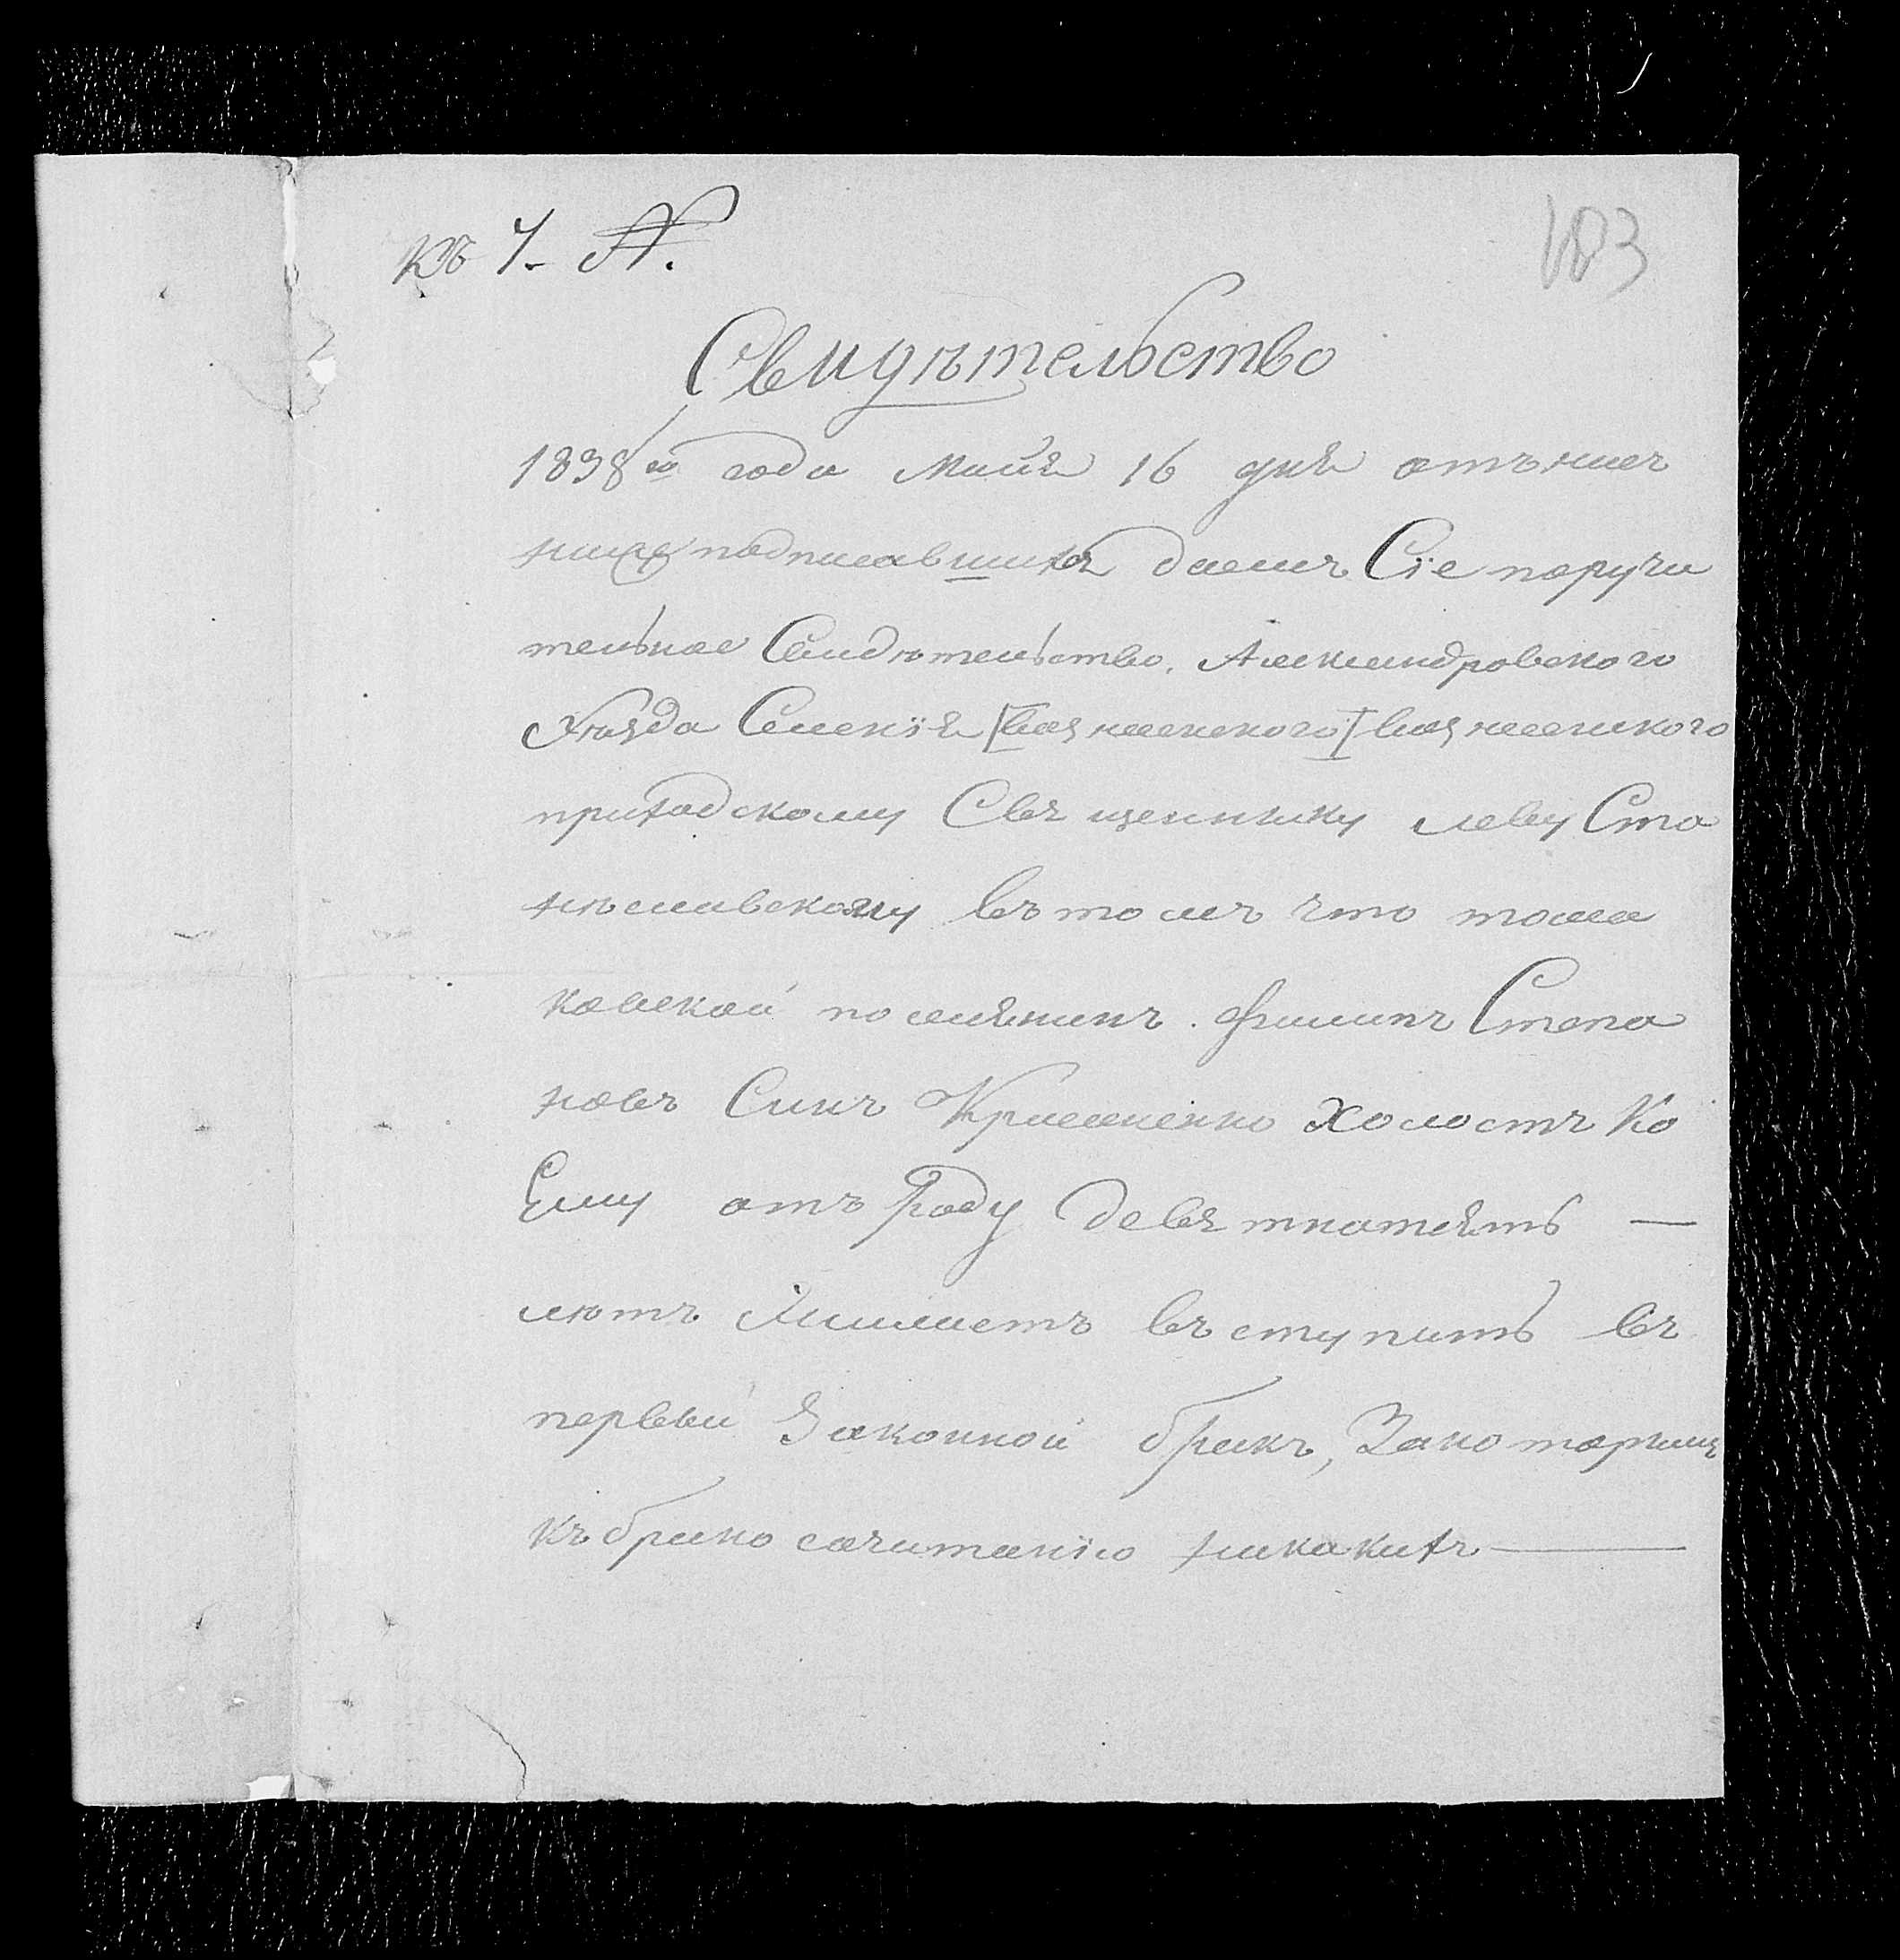 къ 7. №.
183
Свидѣтельство
1838го года Майя 16 дня отъ нас
ниже подписавшихъ даемъ Сіе поручи
тельное Свидѣтельство, Александровского
Уѣзда Селенія [вознесенского] вознесенского
приходскому Священнику леву Ста
нѣславскому въ томъ что тома
ковской поселянинъ. филипъ Степа
новъ Синъ Кравченко Холостъ Ко
Ему отъ Роду девятнатсять —
лѣтъ Жилаетъ въступить въ
первый Законной бракъ, Закоторимъ
къ брако сочитанію никакихъ —